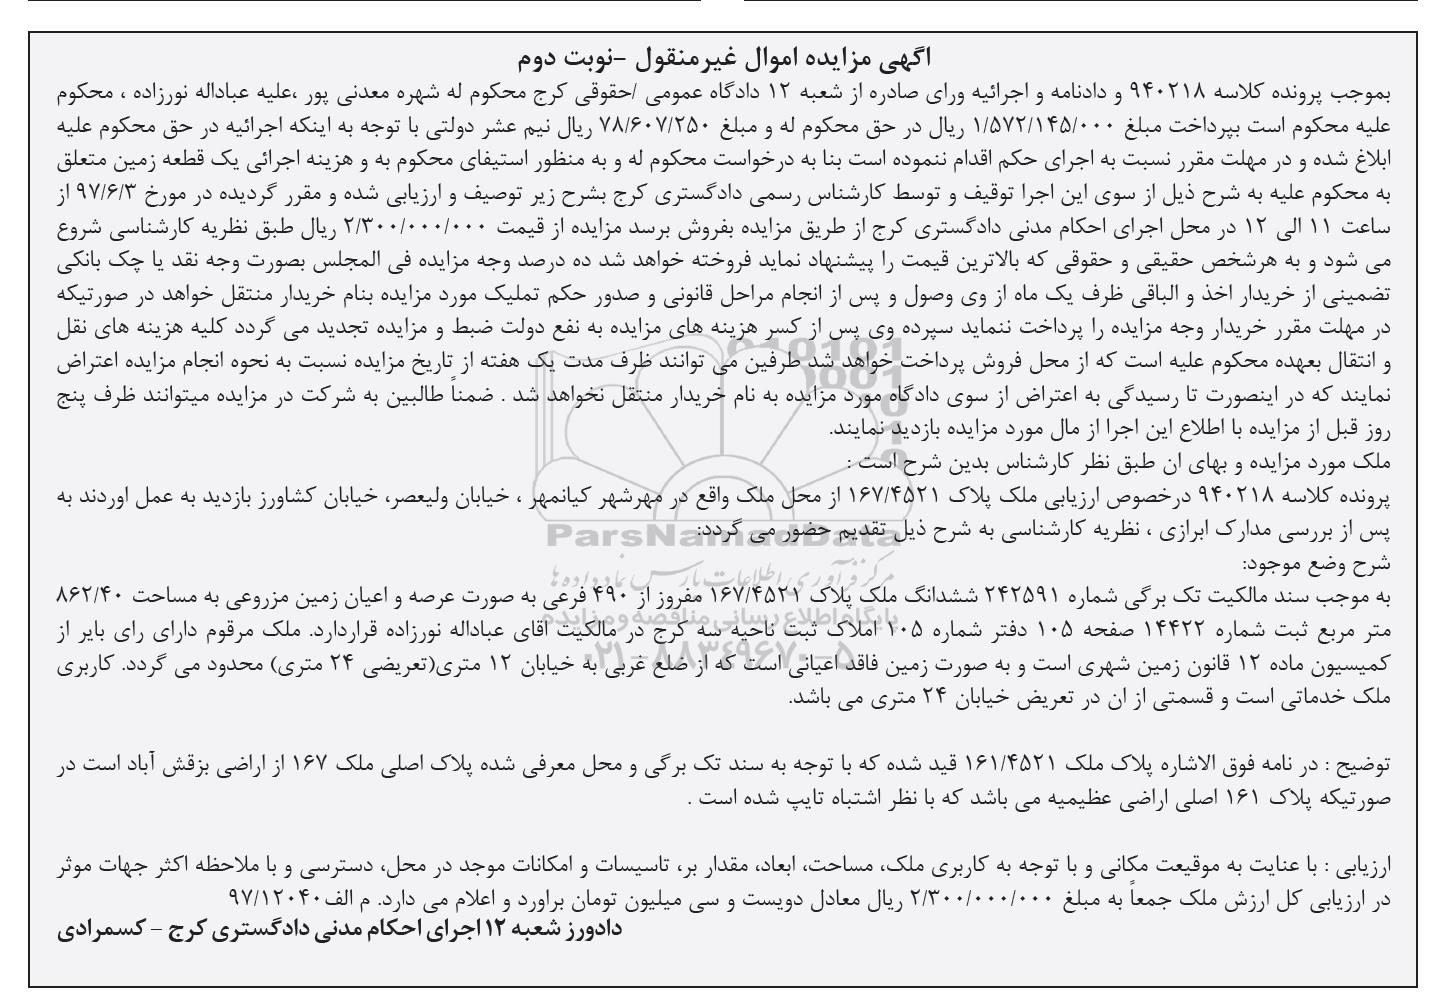 اگهی مزایده اموال غیرمنقول -نوبت دوم
بموجب پرونده کلاسه ۹۴۰۲۱۸ و دادنامه و اجرائیه ورای صادره از شعبه ۱۲ دادگاه عمومی /حقوقی کرج محکوم له شهره معدنی پور ،علیه عباداله نورزاده ، محکوم
علیه محکوم است بپرداخت مبلغ ۱/۵۷۲/۱۴۵/۰۰۰ ریال در حق محکوم له و مبلغ ۷۸/۶۰۷/۲۵۰ ریال نیم عشر دولتی با توجه به اینکه اجرائیه در حق محکوم علیه
ابلاغ شده و در مهلت مقرر نسبت به اجرای حکم اقدام ننموده است بنا به درخواست محکوم له و به منظور استیفای محکوم به و هزینه اجرائی یک قطعه زمین متعلق
به محکوم علیه به شرح ذیل از سوی این اجرا توقیف و توسط کارشناس رسمی دادگستری کرج بشرح زیر توصیف و ارزیابی شده و مقرر گردیده در مورخ ۹۷/۶/۳ از
ساعت ۱۱ الی ۱۲ در محل اجرای احکام مدنی دادگستری کرج از طریق مزایده بفروش برسد مزایده از قیمت ۲/۳۰۰/۰۰۰/۰۰۰ ریال طبق نظریه کارشناسی شروع
می شود و به هرشخص حقیقی و حقوقی که بالاترین قیمت را پیشنهاد نماید فروخته خواهد شد ده درصد وجه مزایده فی المجلس بصورت وجه نقد یا چک بانکی
تضمینی از خریدار اخذ و الباقی ظرف یک ماه از وی وصول و پس از انجام مراحل قانونی و صدور حکم تملیک مورد مزایده بنام خریدار منتقل خواهد در صورتیکه
در مهلت مقرر خریدار وجه مزایده را پرداخت ننماید سپرده وی پس از کسر هزینه های مزایده به نفع دولت ضبط و مزایده تجدید می گردد کلیه هزینه های نقل
و انتقال بعهده محکوم علیه است که از محل فروش پرداخت خواهد شد طرفین می توانند ظرف مدت یک هفته از تاریخ مزایده نسبت به نحوه انجام مزایده اعتراض
نمایند که در اینصورت تا رسیدگی به اعتراض از سوی دادگاه مورد مزایده به نام خریدار منتقل نخواهد شد . ضمناً طالبین به شرکت در مزایده میتوانند ظرف پنج
روز قبل از مزایده با اطلاع این اجرا از مال مورد مزایده بازدید نمایند.
ملک مورد مزایده و بهای ان طبق نظر کارشناس بدین شرح است :
پرونده کلاسه ۹۴۰۲۱۸ درخصوص ارزیابی ملک پلاک ۱۶۷/۴۵۲۱ از محل ملک واقع در مهرشهر کیانمهر ، خیابان ولیعصر، خیابان کشاورز بازدید به عمل اوردند به
پس از بررسی مدارک ابرازی ، نظریه کارشناسی به شرح ذیل تقدیم حضور می گردد:
ParsNamadData
شرح وضع موجود:
مرکز فرآوری اطلاعات پارس نماد داده ها
به موجب سند مالکیت تک برگی شماره ۲۴۲۵۹۱ ششدانگ ملک پلاک ۱۶۷/۴۵۲۱ مفروز از ۴۹۰ فرعی به صورت عرصه و اعیان زمین مزروعی به مساحت ۸۶۲/۴۰
پایگاه اطلاع رسانی مناقصه و مزایده
متر مربع ثبت شماره ۱۴۴۲۲ صفحه ۱۰۵ دفتر شماره ۱۰۵ املاک ثبت ناحیه سه کرج در مالکیت آقای عباداله نورزاده قراردارد. ملک مرقوم دارای رای بایر از
۰۲۱-۸۸۳۴۹۶۷۰-۵
کمیسیون ماده ۱۲ قانون زمین شهری است و به صورت زمین فاقد اعیانی است که از ضلع غربی به خیابان ۱۲ متری(تعریضی ۲۴ متری) محدود می گردد. کاربری
ملک خدماتی است و قسمتی از ان در تعریض خیابان ۲۴ متری می باشد.
توضیح : در نامه فوق الاشاره پلاک ملک ۱۶۱/۴۵۲۱ قید شده که با توجه به سند تک برگی و محل معرفی شده پلاک اصلی ملک ۱۶۷ از اراضی بزقش آباد است در
صورتیکه پلاک ۱۶۱ اصلی اراضی عظیمیه می باشد که با نظر اشتباه تایپ شده است .
ارزیابی : با عنایت به موقیعت مکانی و با توجه به کاربری ملک، مساحت، ابعاد، مقدار بر، تاسیسات و امکانات موجد در محل، دسترسی و با ملاحظه اکثر جهات موثر
در ارزیابی کل ارزش ملک جمعاً به مبلغ ۲/۳۰۰/۰۰۰/۰۰۰ ریال معادل دویست و سی میلیون تومان براورد و اعلام می دارد. م الف۹۷/۱۲۰۴۰
دادورز شعبه ۱۲ اجرای احکام مدنی دادگستری کرج - کسمرادی